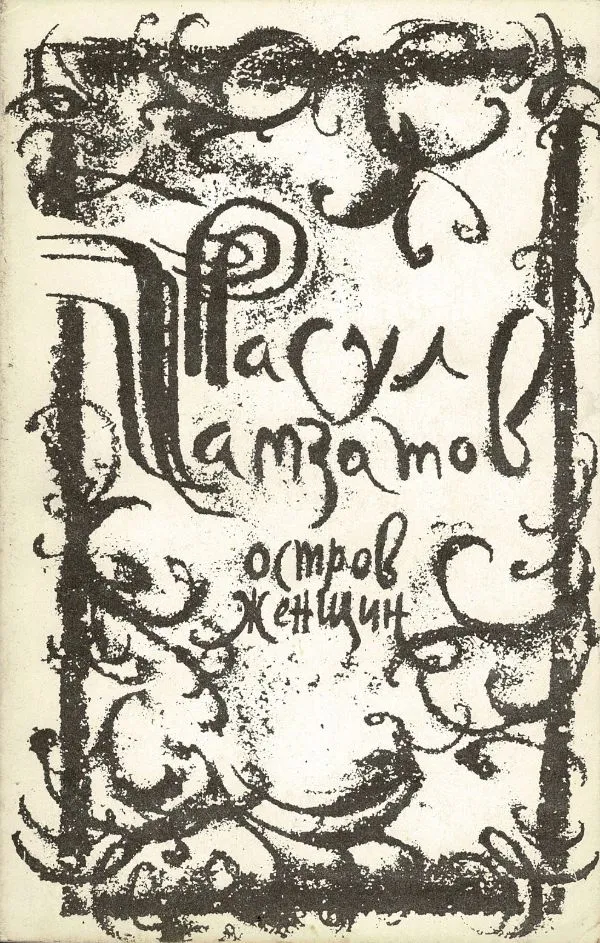 Расул
Гамзатов
остров
женщин